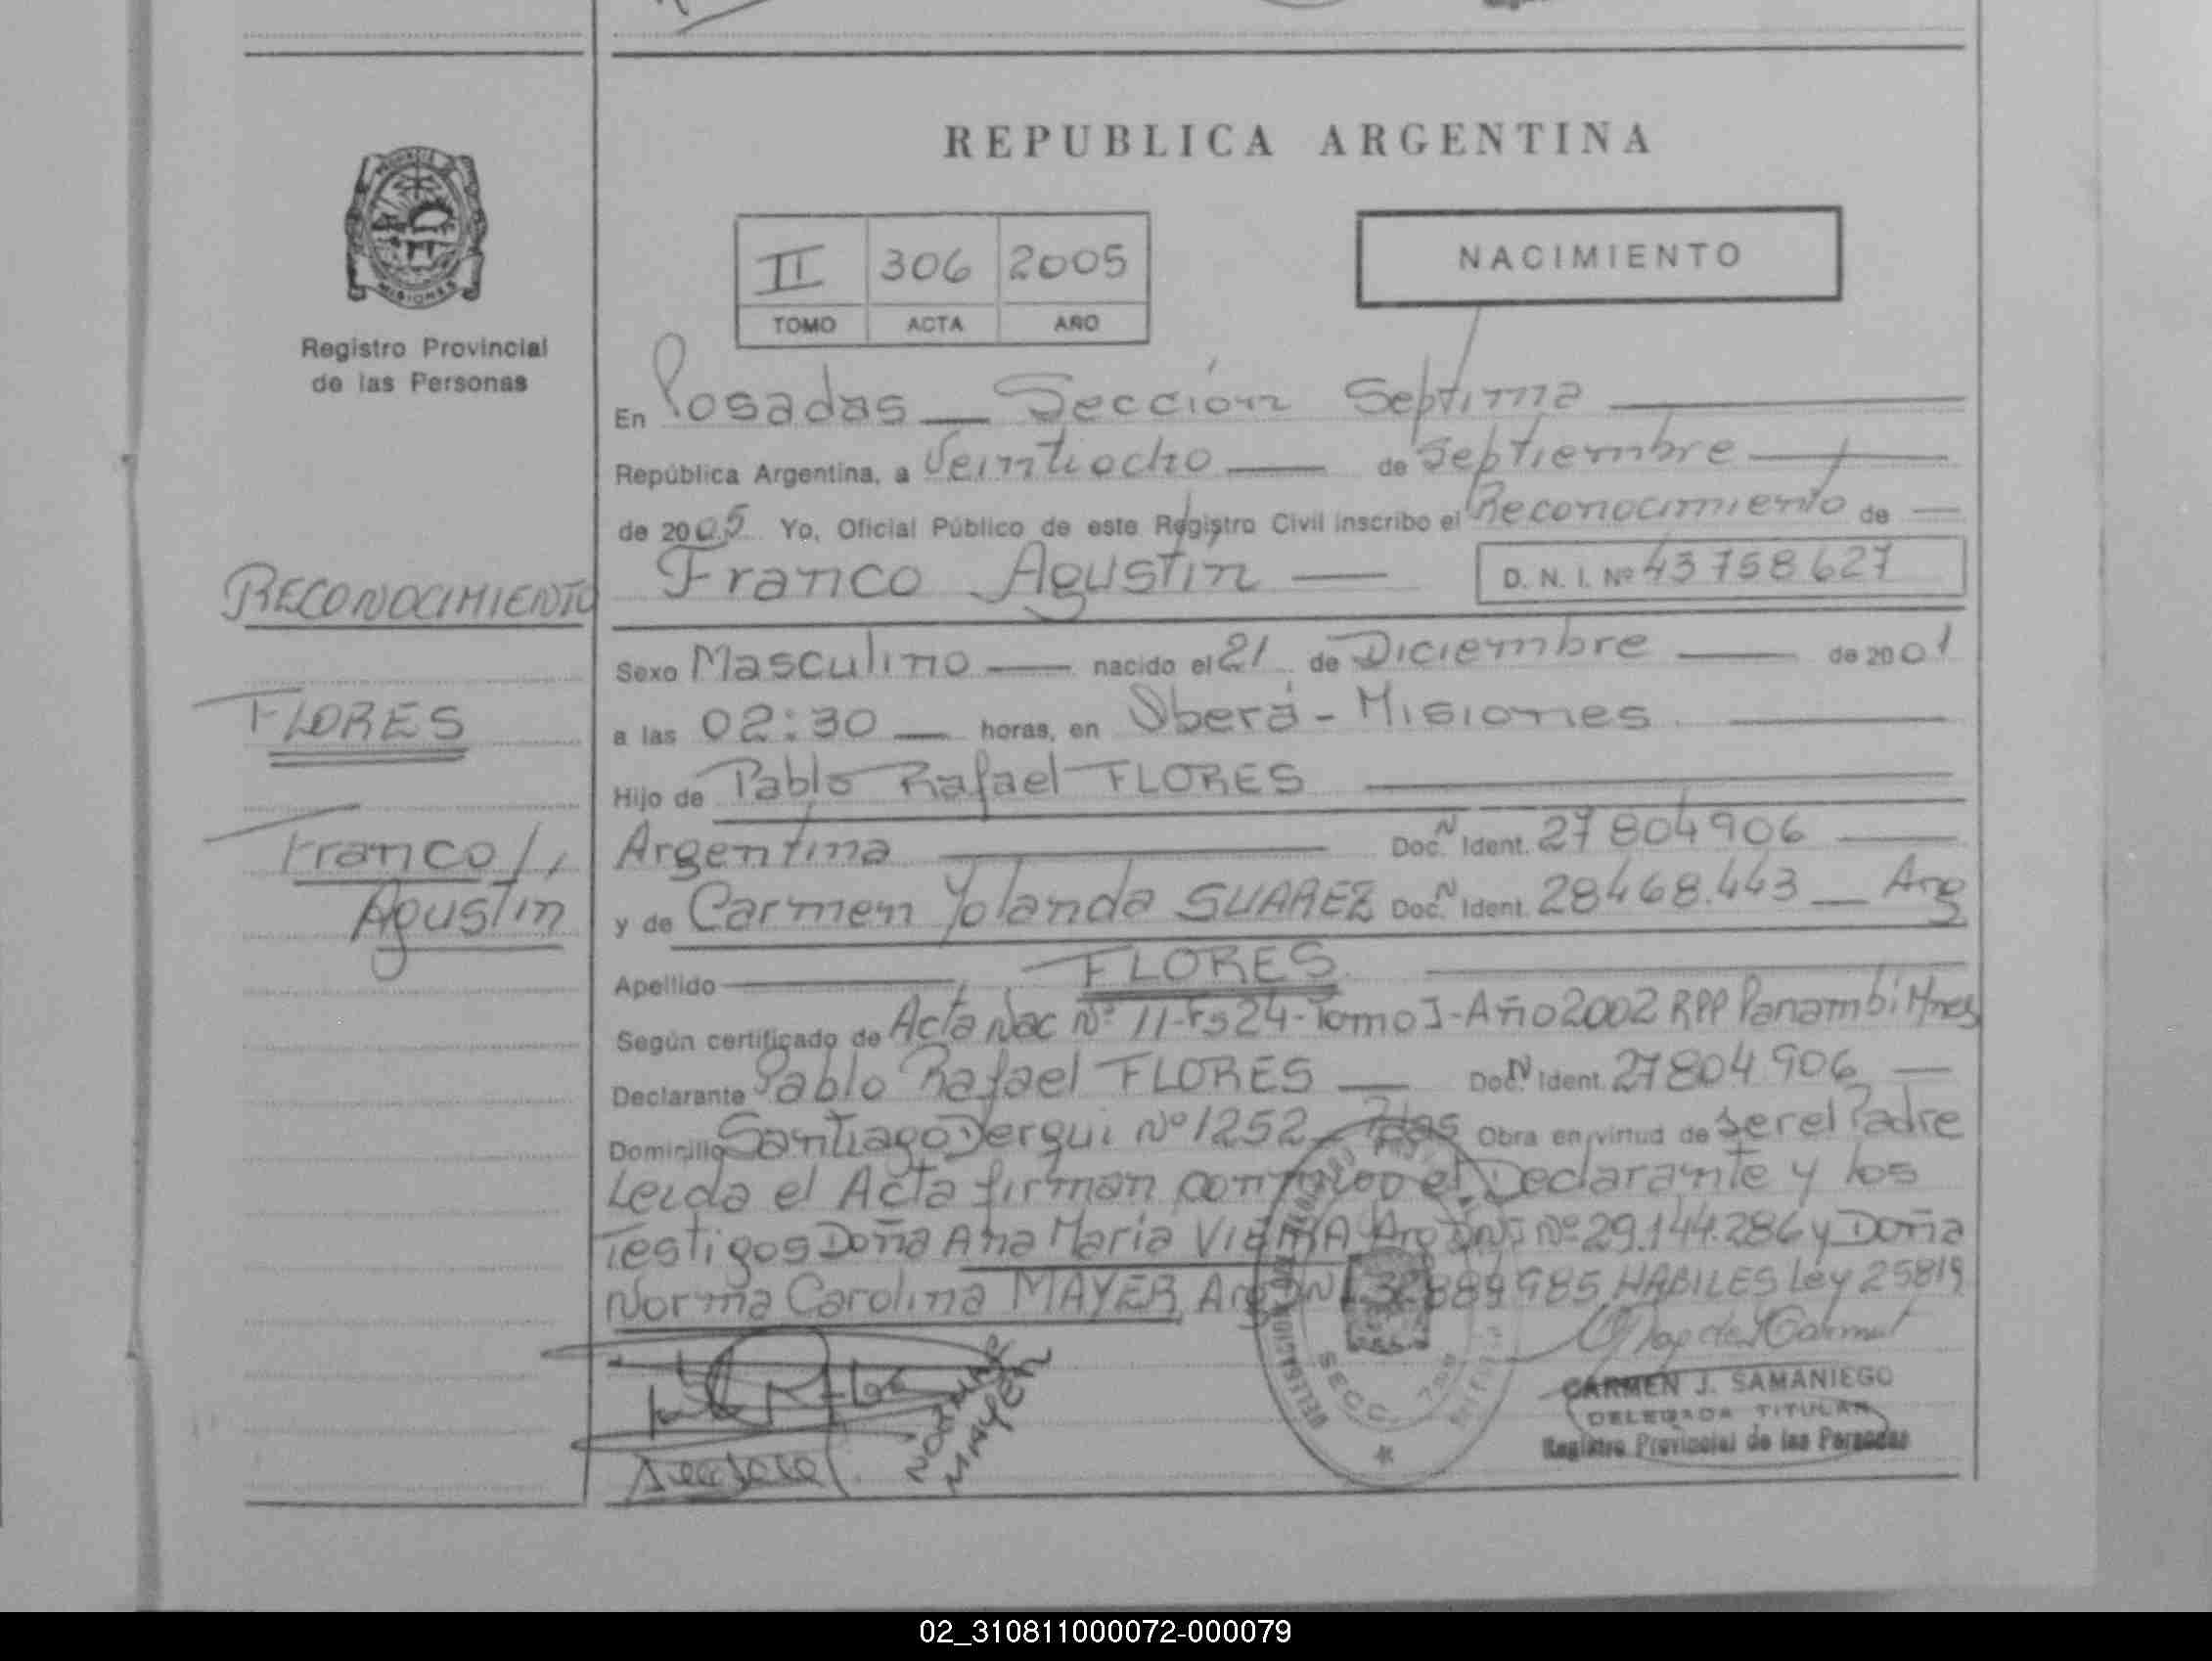 REPUBLICA ARGENTINA
II 306 2005
TOMO ACTA AÑO
NACIMIENTO
MISIONES
Registro Provincial
de las Personas
En Posadas — Sección Septima
República Argentina, a Veintiocho — de Septiembre
de 2005 Yo, Oficial Público de este Registro Civil inscribo el Reconocimiento de
Franco Agustín — D. N. I. Nº 43758627
RECONOCIMIENTO
FLORES
Franco
Agustín
Sexo Masculino — nacido el 21 de Diciembre — de 2001
a las 02:30 — horas, en Oberá - Misiones
Hijo de Pablo Rafael FLORES
Argentina — Doc. N Ident. 27804906
y de Carmen Yolanda SUAREZ Doc. N Ident. 28468.443 — Arg
Apellido — FLORES
Según certificado de Acta Nac Nº 11-Fs24-Tomo I-Año 2002 RPP Panambí Mnes
Declarante Pablo Rafael FLORES — Doc. N Ident. 27804906
Domicilio Santiago Derqui Nº 1252 - Pdas Obra en virtud de ser el Padre
Leida el Acta firman conmigo el Declarante y los
Testigos Doña Ana Maria Arg DNI Nº 29.144.286 y Doña
Norma Carolina MAYER Arg DNI HABILES Ley 25819
NORMA
MAYER
SECC. 7ma
CARMEN J. SAMANIEGO
DELEGADA TITULAR
Registro Provincial de las Personas
02_310811000072-000079